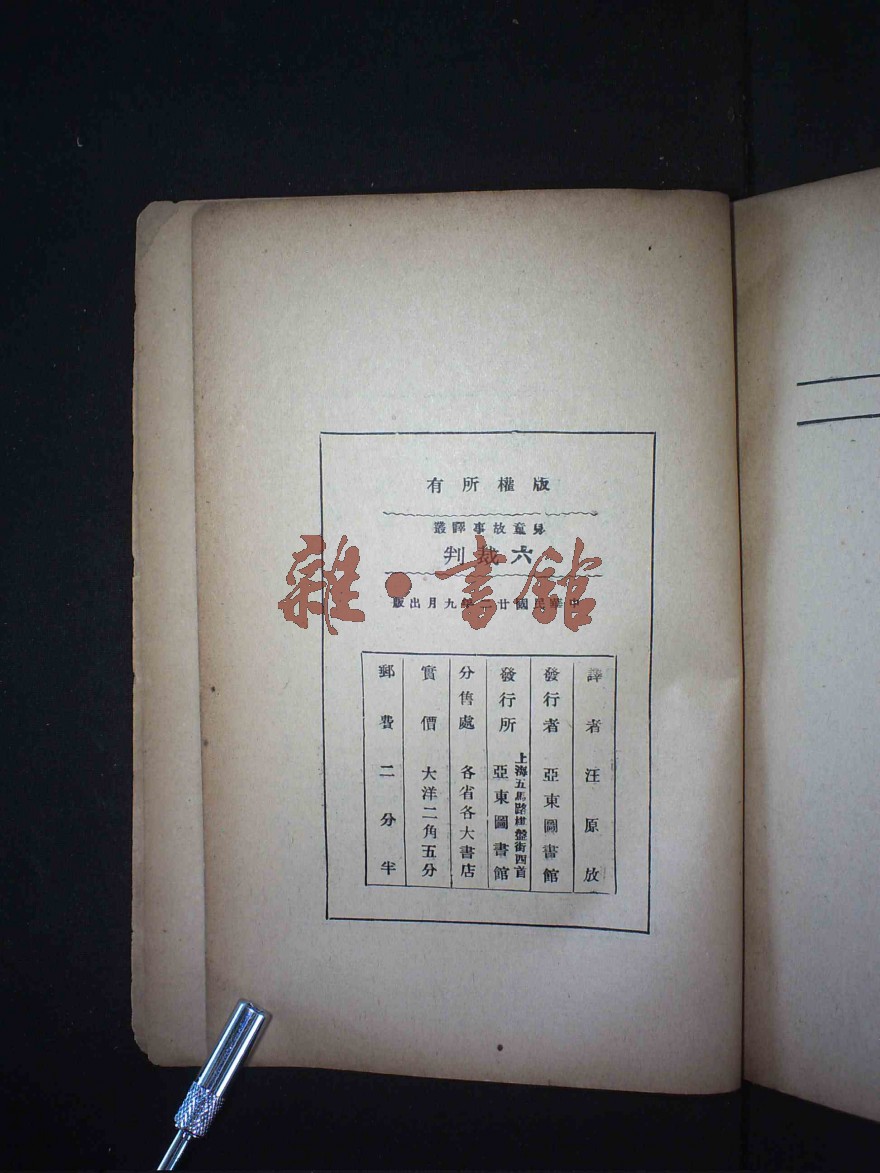 版權所有
兒童故事譯叢
六裁判
中華民國廿二年九月出版
譯者 汪原放
發行者 亞東圖書館
發行所 上海五馬路棋盤街西首 亞東圖書館
分售處 各省各大書店
實價 大洋二角五分
郵費二分半
雜·書館